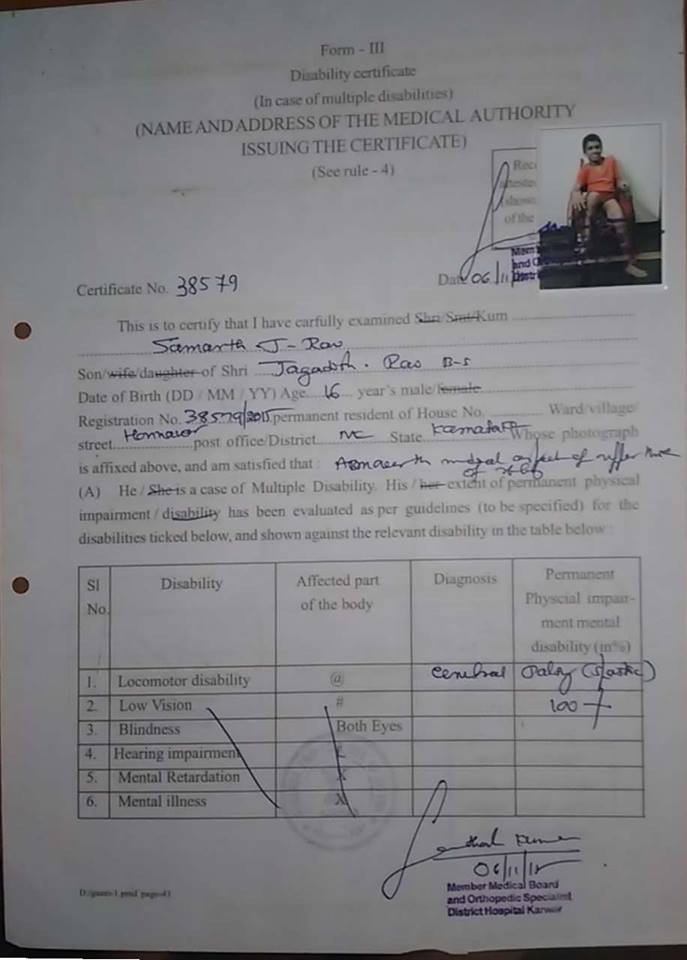 Form - III
Disability certificate
(In case of multiple disabilities)
(NAME AND ADDRESS OF THE MEDICAL AUTHORITY
ISSUING THE CERTIFICATE)
(See rule - 4)
Rece
attested
show
of the
Mem
and O
Distri
Certificate No. 38579
Date 06/11/
This is to certify that I have carfully examined Shri/Smt/Kum
Samarth J-Rao
Son/wife/daughter of Shri Jagadish. Rao B-S
Date of Birth (DD / MM / YY) Age 16 year's male/female
Registration No. 38579/2015 permanent resident of House No. Ward/village/
street Honnavar post office/District State Karnataka Whose photograph
is affixed above, and am satisfied that :
(A) He / She is a case of Multiple Disability. His / her extent of permanent physical
impairment / disability has been evaluated as per guidelines (to be specified) for the
disabilities ticked below, and shown against the relevant disability in the table below :
Sl No. Disability Affected part of the body Diagnosis Permanent Physcial impair- ment mental disability (in%)
1. Locomotor disability @ Cerebral Palsy (Spastic)
2. Low Vision # 100
3. Blindness Both Eyes
4. Hearing impairment £
5. Mental Retardation X
6. Mental illness X
06/11/15
Member Medical Board
and Orthopedic Specialist
District Hospital Karwar
D:/guust-1.pmd page-43